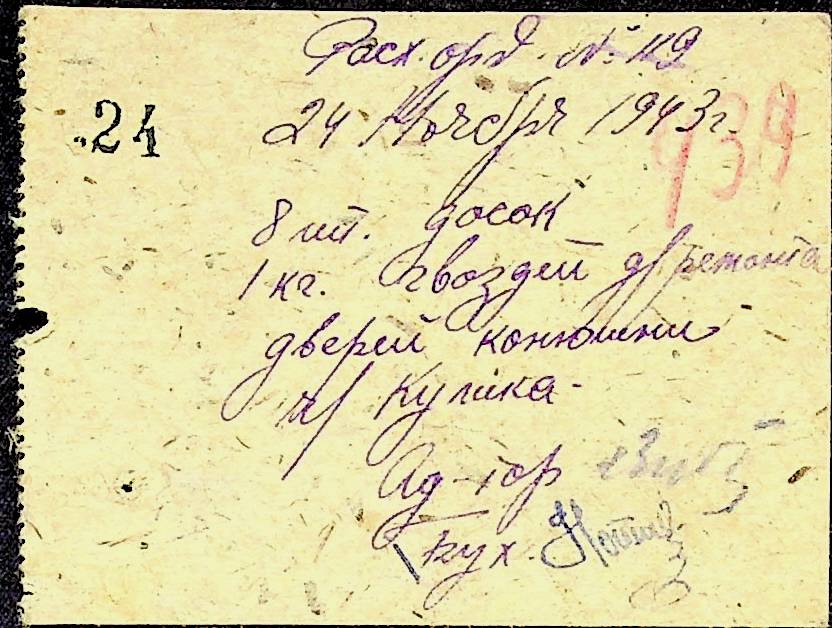 Расх. орд. № 119
24 Ноября 1943 г.
24
939
8 шт. досок
1 кг. гвоздей д/ремонта
дверей конюшни
ч/ Кулика-
Ад-тор
Бух.